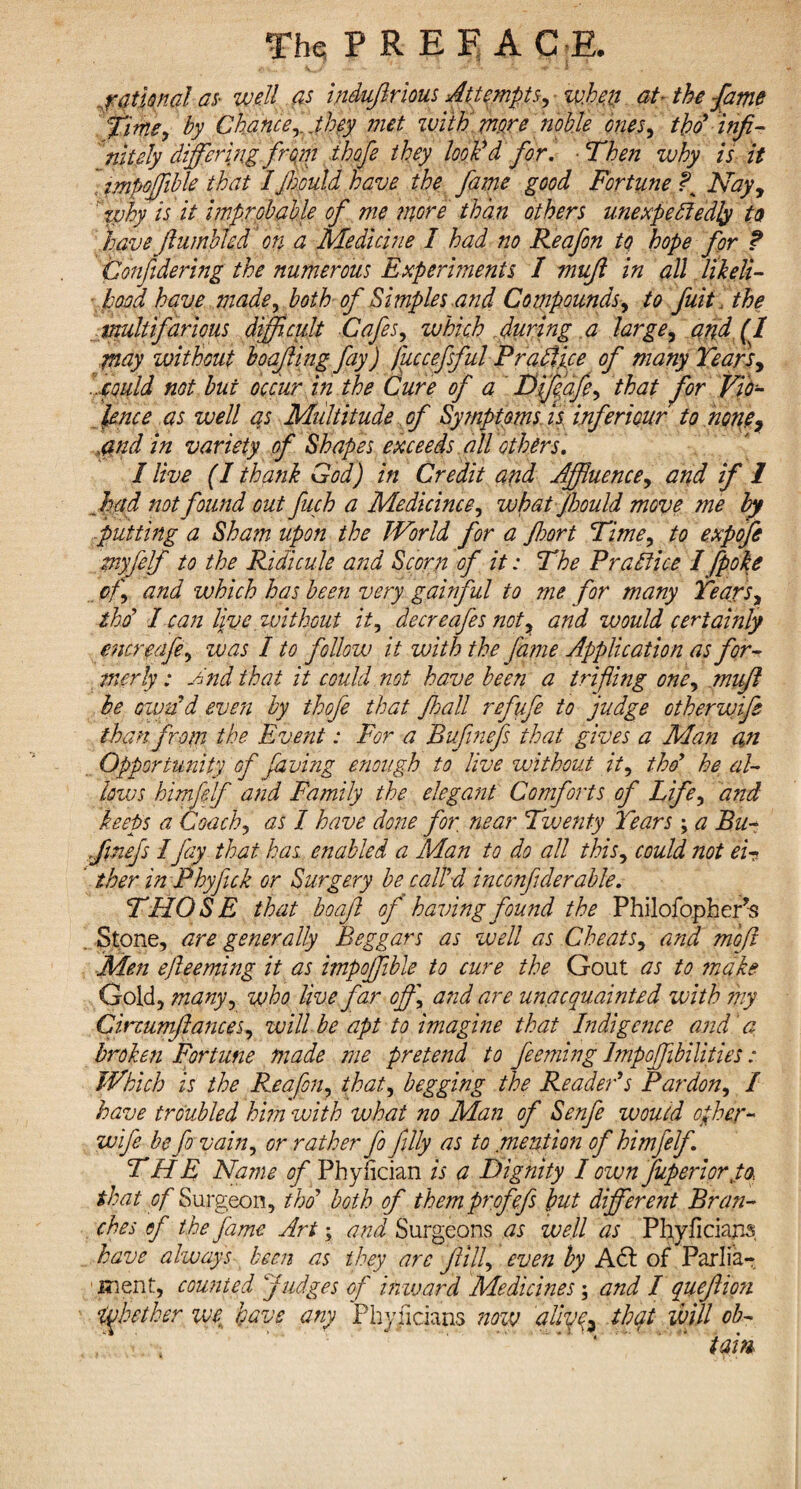 The PREFACE.
rational as well as induſtrious Attempts, when at the ſame
Time, by Chance, they met with more noble ones, tho' infi-
nitely differing from thoſe they look'd for. Then why is it
impoſſible that I ſhould have the ſame good Fortune? Nay,
why is it improbable of me more than others unexpectedly to
have ſtumbled on a Medicine I had no Reaſon to hope for?
Conſidering the numerous Experiments I muſt in all likeli-
hood have made, both of Simples and Compounds, to ſuit the
multifarious difficult Caſes, which during a large, and (I
may without boaſting ſay) ſucceſsful Practice of many Years,
could not but occur in the Cure of a Diſeaſe, that for Vio-
lence as well as Multitude of Symptoms is inferiour to none,
and in variety of Shapes exceeds all others.
I live (I thank God) in Credit and Affluence, and if I
had not found out ſuch a Medicince, what ſhould move me by
putting a Sham upon the World for a ſhort Time, to expoſe
myſelf to the Ridicule and Scorn of it: The Practice I ſpoke
of, and which has been very gainful to me for many Years,
tho' I can live without it, decreaſes not, and would certainly
encreaſe, was I to follow it with the ſame Application as for-
merly: And that it could not have been a trifling one, muſt
be own'd even by thoſe that ſhall refuſe to judge otherwiſe
than from the Event: For a Buſineſs that gives a Man an
Opportunity of ſaving enough to live without it, tho' he al-
lows himſelf and Family the elegant Comforts of Life, and
keeps a Coach, as I have done for near Twenty Years; a Bu-
ſineſs I ſay that has enabled a Man to do all this, could not ei-
ther in Phyſick or Surgery be call'd inconſiderable.
THOSE that boaſt of having found the Philoſopher's
Stone, are generally Beggars as well as Cheats, and moſt
Men eſteeming it as impoſſible to cure the Gout as to make
Gold, many, who live far off, and are unacquainted with my
Circumſtances, will be apt to imagine that Indigence and a
broken Fortune made me pretend to ſeeming Impoſſibilities:
Which is the Reaſon, that, begging the Reader's Pardon, I
have troubled him with what no Man of Senſe would other-
wiſe be ſo vain, or rather ſo ſilly as to mention of himſelf.
THE Name of Phyſician is a Dignity I own ſuperior to
that of Surgeon, tho' both of them profeſs but different Bran-
ches of the ſame Art; and Surgeons as well as Phyſicians
have always been as they are ſtill, even by Act of Parlia-
ment, counted Judges of inward Medicines; and I queſtion
whether we have any Phyſicians now alive, that will ob-
tain